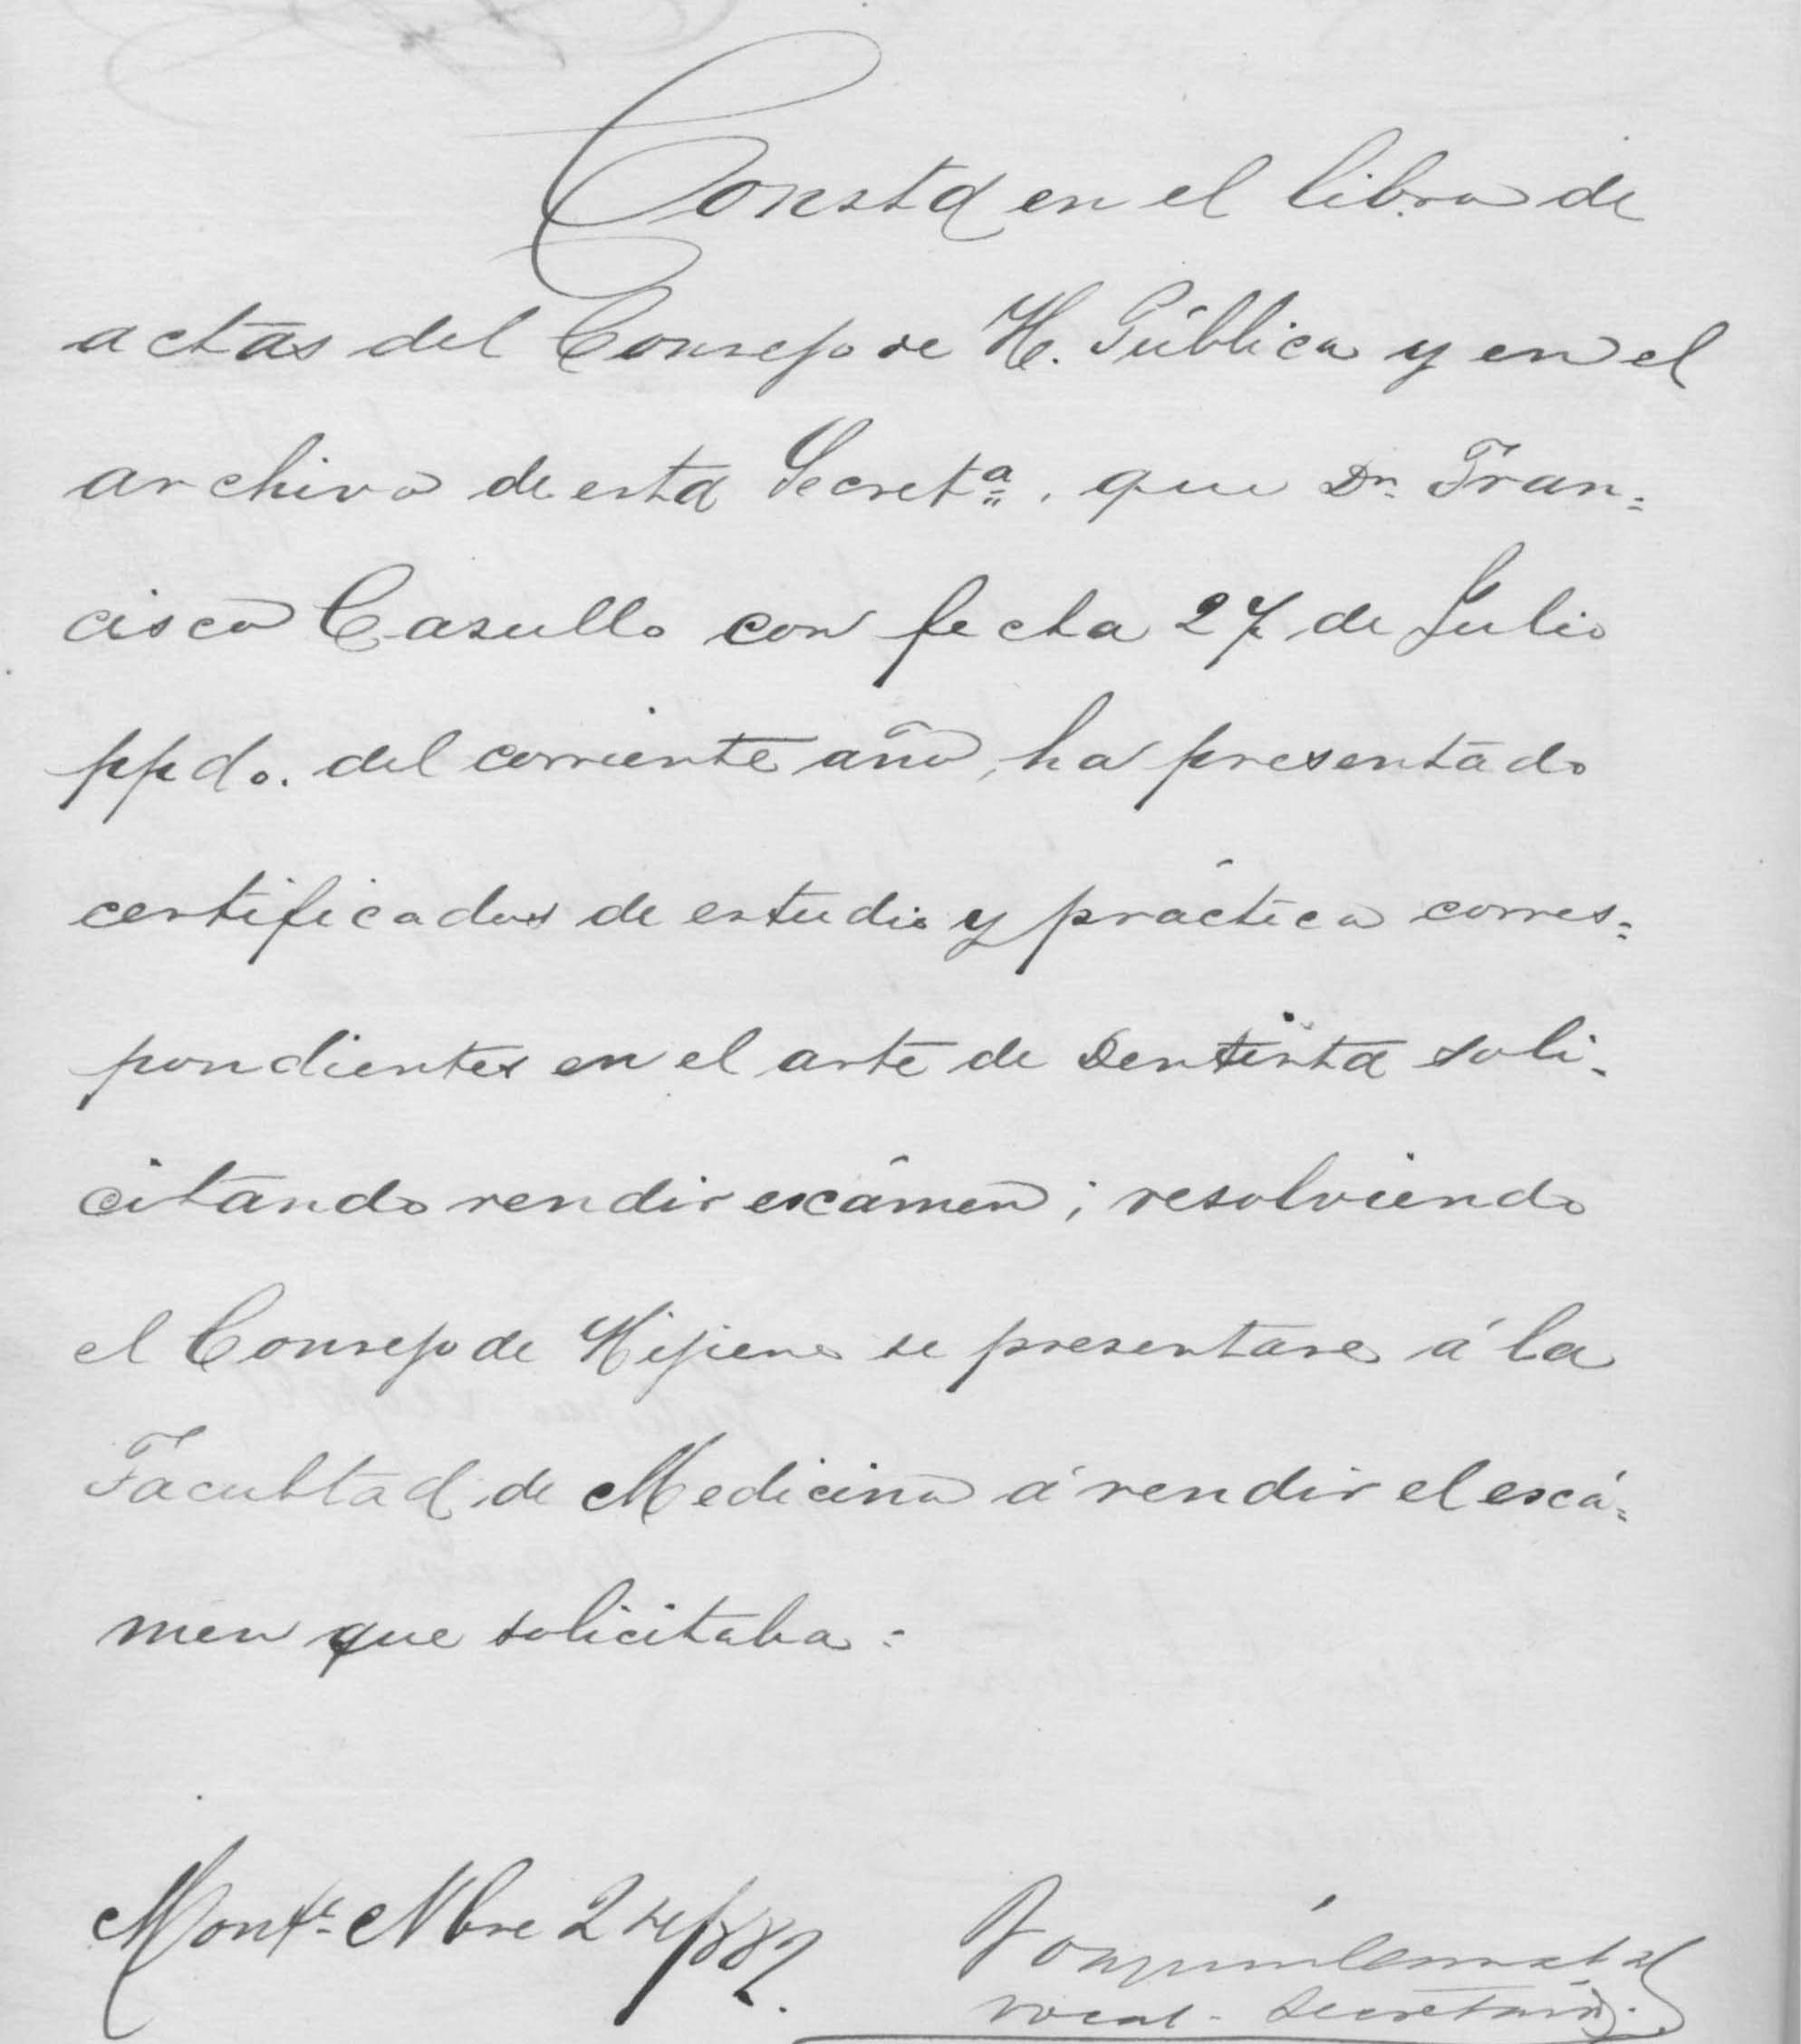 Consta en el libro de
actas del Consejo de H. Pública y en el
archivo de esta Secret.ª, que Dn. Fran=
cisco Casullo con fecha 27 de Julio
ppdo. del corriente año, ha presentado
certificados de estudio y práctica corres=
pondientes en el arte de Dentista soli-
citando rendir excámen; resolviendo
el Consejo de Hijiene se presentare á la
Facultad de Medicina á rendir el escá=
men que solicitaba=
Montº Nbre 24/882.
Vocal - Secretario.